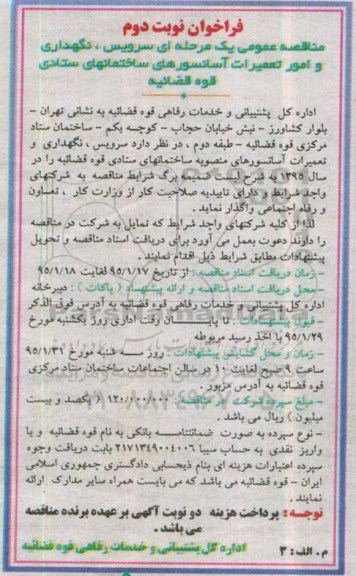 فراخوان نوبت دوم
مناقصه عمومی یک مرحله ای سرویس ، نگهداری
و امور تعمیرات آسانسورهای ساختمانهای ستادی
قوه قضائیه
اداره کل پشتیبانی و خدمات رفاهی قوه قضائیه به نشانی تهران –
بلوار کشاورز – نبش خیابان حجاب – کوچه یکم – ساختمان ستاد
مرکزی قوه قضائیه – طبقه دوم ، در نظر دارد سرویس ، نگهداری و
تعمیرات آسانسورهای منصوبه ساختمانهای ستادی قوه قضائیه را در
سال ۱۳۹۵ به شرح لیست ضمیمه برگ شرایط مناقصه به شرکتهای
واجد شرایط و دارای تاییدیه صلاحیت کار از وزارت کار ، تعاون
و رفاه اجتماعی واگذار نماید .
لذا از کلیه شرکتهای واجد شرایط که تمایل به شرکت در مناقصه
را دارند دعوت بعمل می آورد برای دریافت اسناد مناقصه و تحویل
پیشنهادات مطابق شرایط ذیل اقدام نمایند .
– زمان دریافت اسناد مناقصه : از تاریخ ۹۵/۱/۱۷ لغایت ۹۵/۱/۱۸
– محل دریافت اسناد مناقصه و ارائه پیشنهاد ( پاکات ) : دبیرخانه
اداره کل پشتیبانی و خدمات رفاهی قوه قضائیه به آدرس فوق الذکر
– قبول پیشنهادات : تا پایان وقت اداری روز یکشنبه مورخ
۹۵/۱/۲۹ با اخذ رسید مربوطه
– زمان و محل گشایش پیشنهادات : روز سه شنبه مورخ ۹۵/۱/۳۱
ساعت ۹ صبح لغایت ۱۰ در سالن اجتماعات ساختمان ستاد مرکزی
قوه قضائیه به آدرس مزبور .
– مبلغ سپرده شرکت در مناقصه : ۱۲۰/۰۰۰/۰۰۰ ( یکصد و بیست
میلیون ) ریال می باشد .
– نوع سپرده به صورت ضمانتنامه بانکی به نام قوه قضائیه و یا
واریز نقدی به حساب سیبا ۲۱۷۱۳۴۹۰۰۴۰۰۶ بابت دریافت وجوه
سپرده اعتبارات هزینه ای بنام ذیحسابی دادگستری جمهوری اسلامی
ایران – قوه قضائیه می باشد که می بایست همراه سایر مدارک ارائه
نمایند .
توجه : پرداخت هزینه دو نوبت آگهی بر عهده برنده مناقصه
می باشد .
م . الف : ۳ اداره کل پشتیبانی و خدمات رفاهی قوه قضائیه